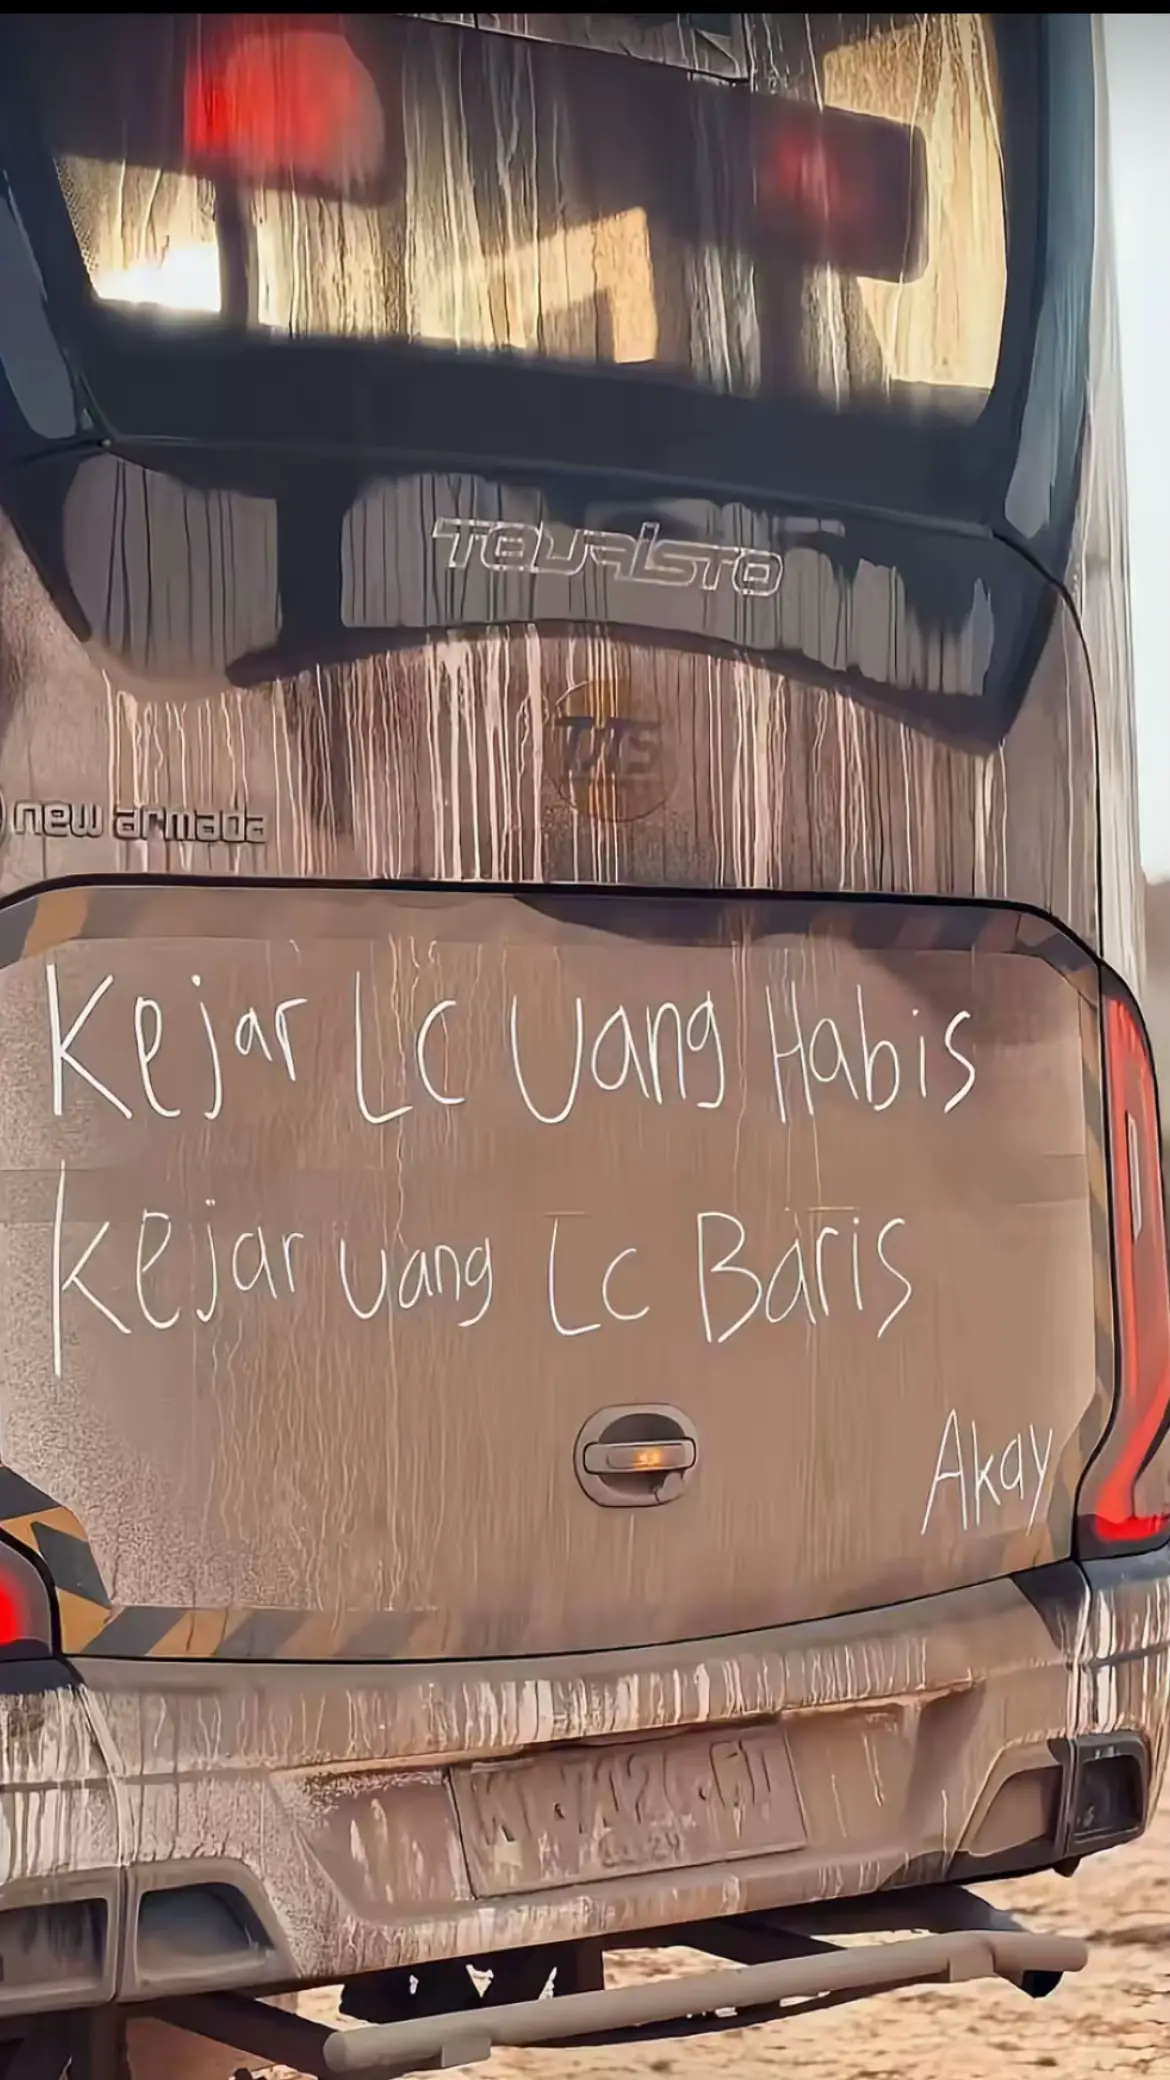 TOURISTO
TJTS
new armada
Kejar Lc Uang Habis
Kejar uang Lc Baris
Akay